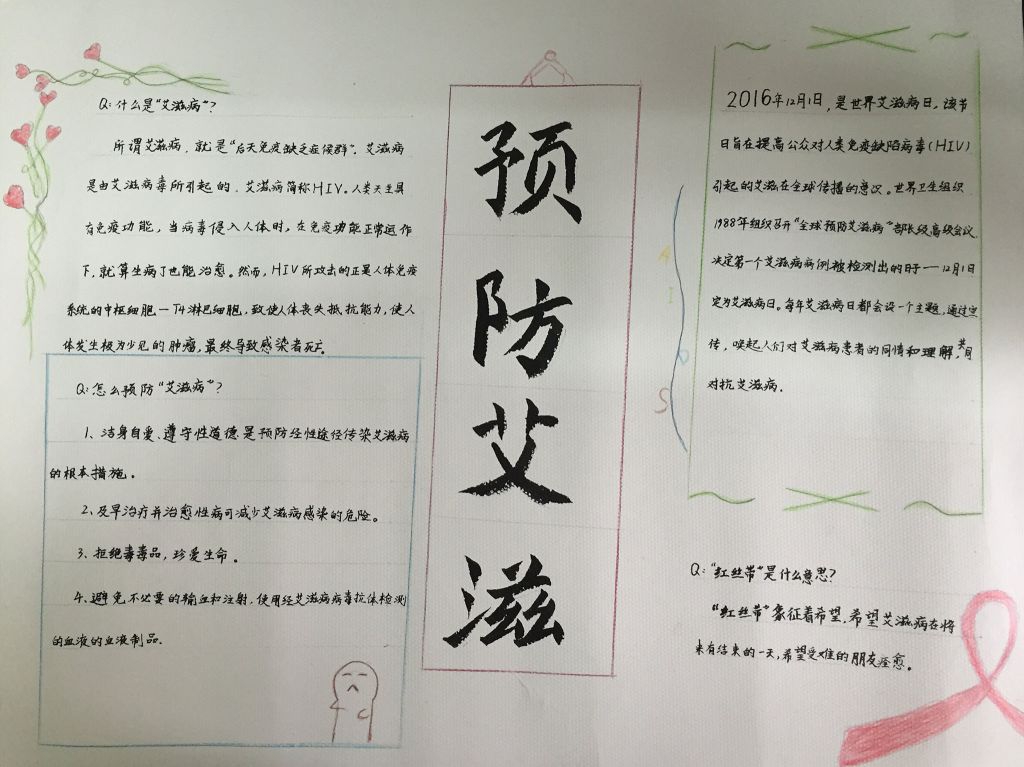 Q: 什么是"艾滋病"?
所谓艾滋病,就是"后天免疫缺乏症候群"。艾滋病
是由艾滋病毒所引起的,艾滋病简称HIV。人类天生具
有免疫功能,当病毒侵入人体时,在免疫功能正常运作
下,就算生病了也能治愈。然而,HIV所攻击的正是人体免疫
系统的中枢细胞—T4淋巴细胞,致使人体丧失抵抗能力,使人
体发生极为少见的肿瘤,最终导致感染者死亡。
Q: 怎么预防"艾滋病"?
1、洁身自爱、遵守性道德是预防经性途径传染艾滋病
的根本措施。
2、及早治疗并治愈性病可减少艾滋病感染的危险。
3、拒绝毒毒品,珍爱生命。
4、避免不必要的输血和注射,使用经艾滋病病毒抗体检测
的血液的血液制品。
预
防
艾
滋
A
I
D
S
2016年12月1日,是世界艾滋病日,该节
日旨在提高公众对人类免疫缺陷病毒(HIV)
引起的艾滋在全球传播的意识。世界卫生组织
1988年组织召开"全球预防艾滋病"部长级高级会议
决定第一个艾滋病病例被检测出的日子——12月1日
定为艾滋病日。每年艾滋病日都会设一个主题,通过宣
传,唤起人们对艾滋病患者的同情和理解,共同
对抗艾滋病.
Q: "红丝带"是什么意思?
"红丝带"象征着希望,希望艾滋病在将
来有结束的一天,希望受难的朋友痊愈。